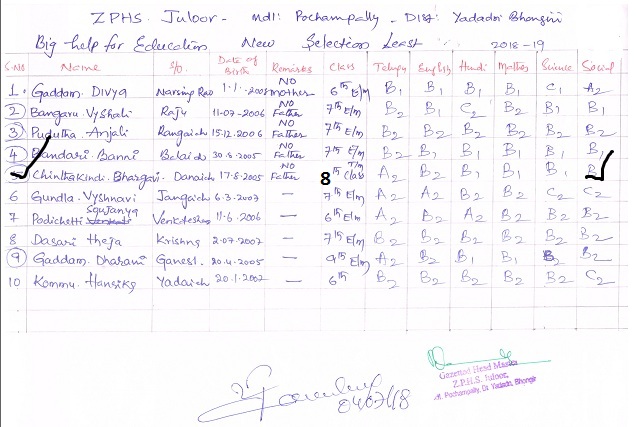 ZPHS. Juloor - Mdl: Pochampally. Dist: Yadadri Bhongiri
Big help for Education New Selection Least 2018-19
S.NO Name S/o. Date of Birth Remarks Class Telugu English Hindi Maths Science Social
1. Gaddam. Divya Narsing Rao 1-1-2005 NO mother 6th E/m B1 B1 B1 B1 C1 A2
2 Bangaru Vyshali Raju 11-07-2006 NO Father 7th E/m B2 B1 C2 B2 B1 B1
3 Pudutha Anjali Rangaiah 15.12.2006 NO Father 7th E/m B2 B2 B2 B2 B2 B2
4 Bandari Banni Balaiah 30.8.2005 NO Father 7th E/m B2 B2 B1 B1 B1 B1
Chinthakindi. Bhargavi Danaiah 17.8.2005 NO Father 8th T/m Class A2 B2 B1 B1 B1
6 Gundla. Vyshnavi Jangaiah 6.3.2007 — 7th E/m A2 A2 B2 B2 C2 C2
7 Podichetti Soujanya Venkatesh 11.6.2006 — 6th E/m A2 B2 A2 B2 B2 B2
8 Dasari theja Krishna 2.07.2007 — 7th E/m B2 B2 B2 B2 B2 B2
9 Gaddam. Dharani Ganesh 20.4.2005 — 9th E/m A2 B2 B1 B1 B2 B2
10 Kommu. Hansika Yadaiah 20.1.2007 — 6th B2 B2 B2 B2 B2 C2
04/07/18
Gazetted Head Master
Z.P.H.S. Juloor,
M. Pochampally, Dt Yadadri, Bhongir